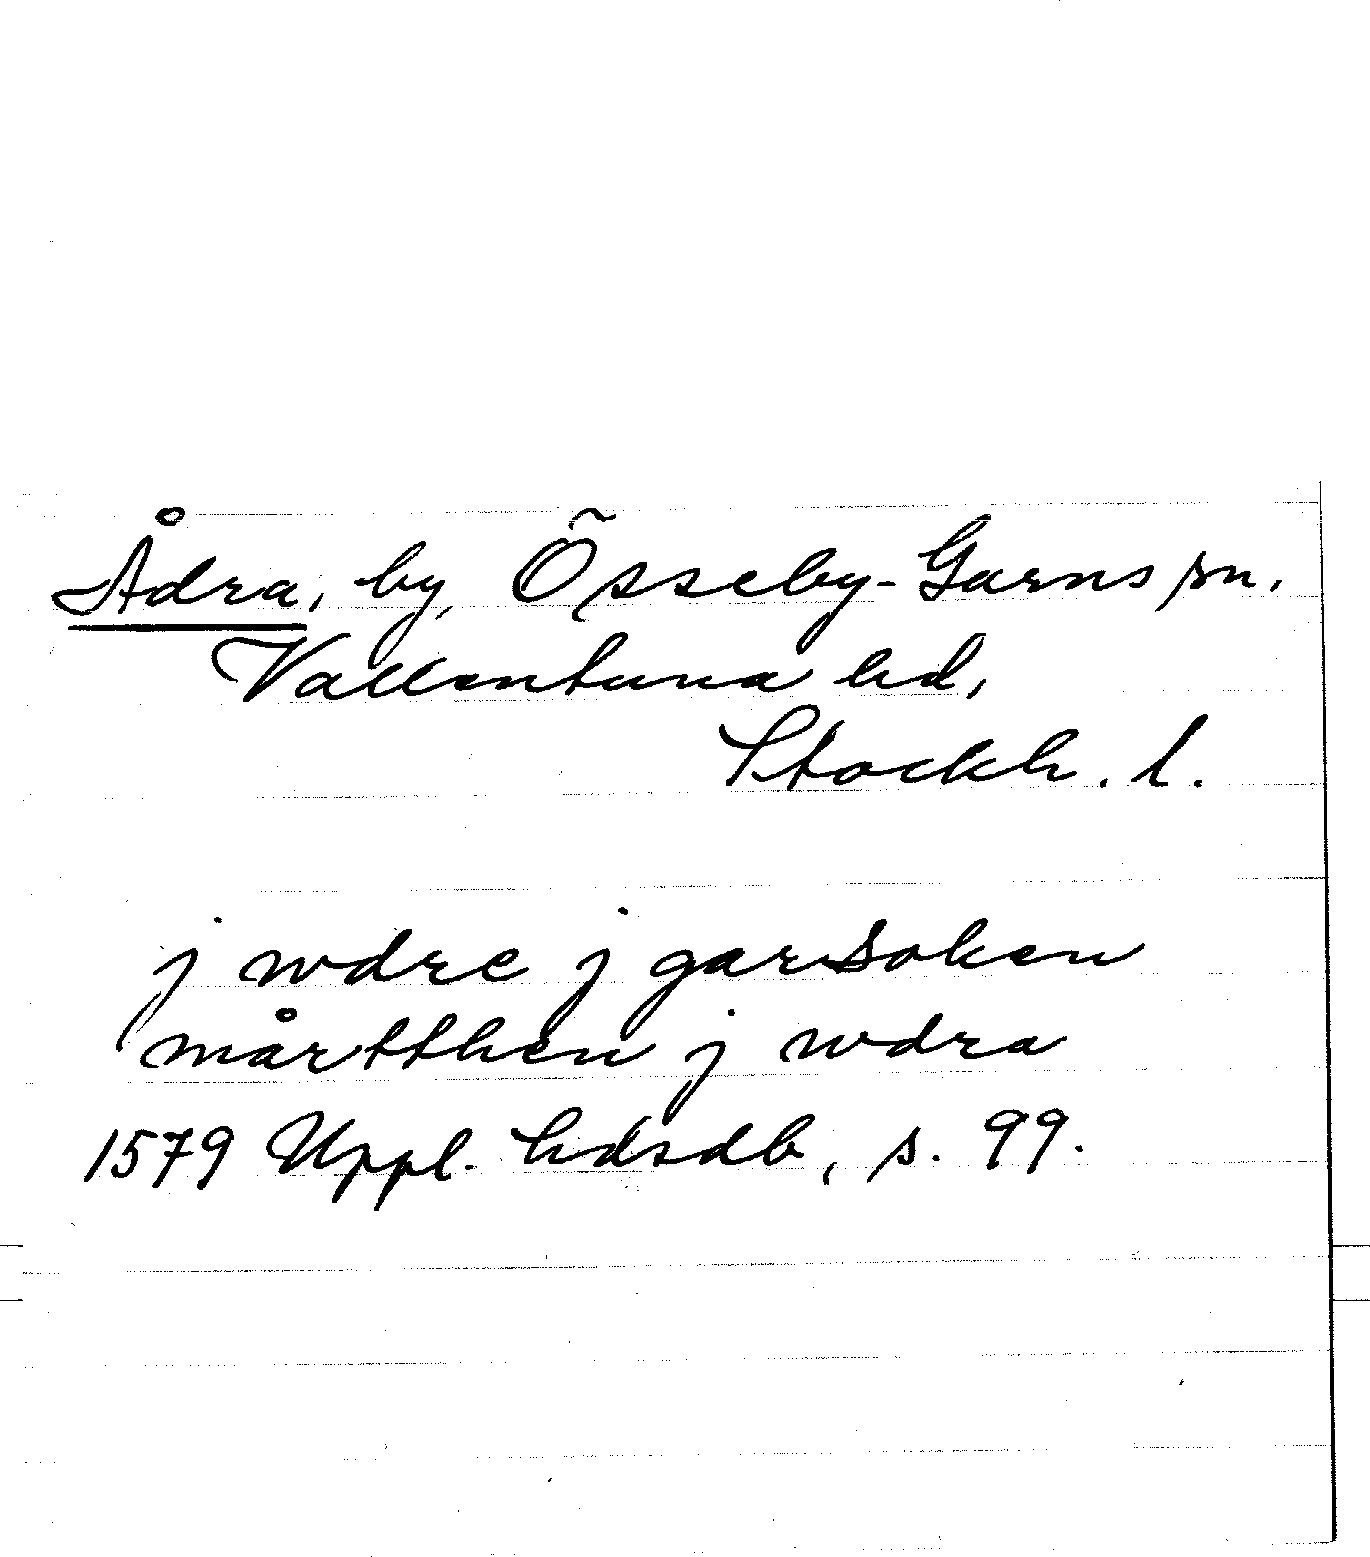 Ådra, by, Össeby-Garns sn,
Vallentuna hd,
Stockh. l.
j wdre j garsoken
mårtthen j wdra
1579 Uppl. hdsdb, s. 99.